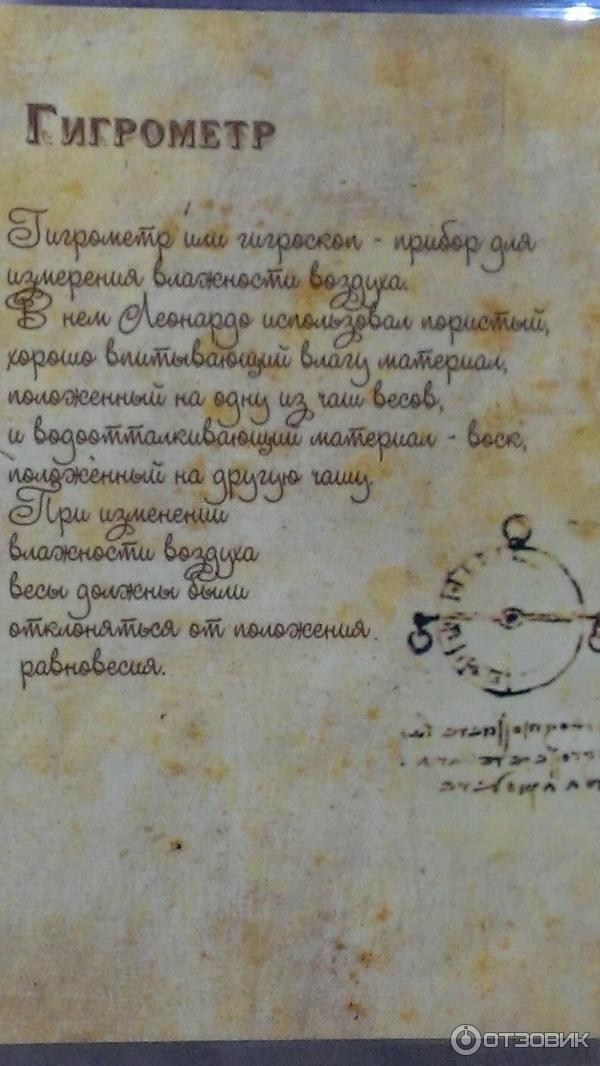 Гигрометр
Гигрометр или гигроскоп - прибор для
измерения влажности воздуха.
В нем Леонардо использовал пористый,
хорошо впитывающий влагу материал,
положенный на одну из чаш весов,
и водоотталкивающий материал - воск,
положенный на другую чашу.
При изменении
влажности воздуха
весы должны были
отклоняться от положения
равновесия.
ОТЗОВИК